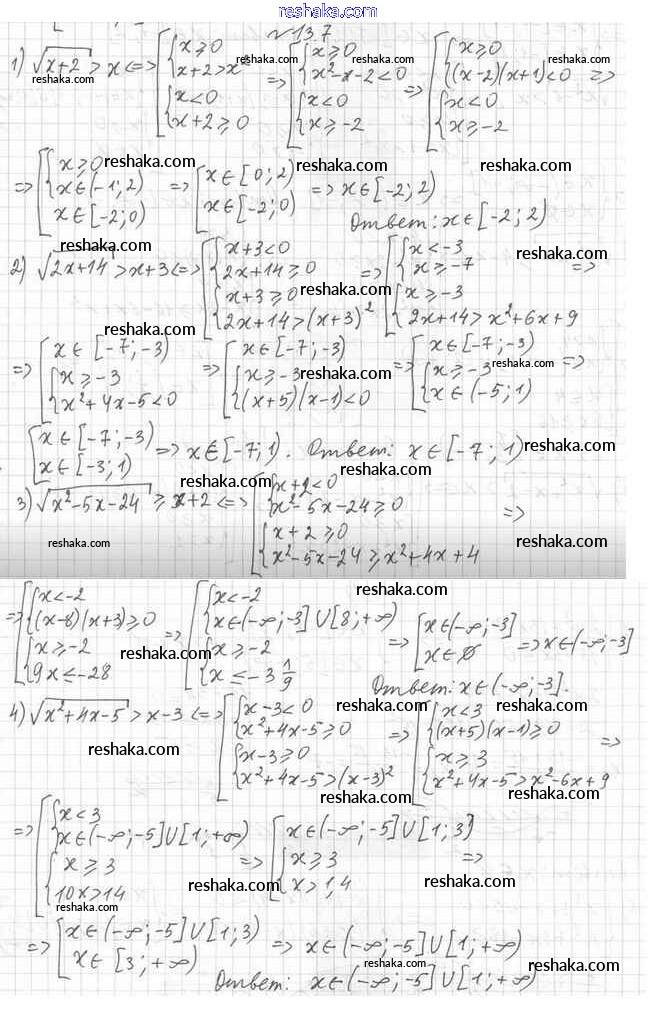 reshaka.com
№137
1) √(x+2) > x <=> [ { x ⩾ 0 ; x+2 > x² ; { x < 0 ; x+2 ⩾ 0 => [ { x ⩾ 0 ; x²-x-2 < 0 ; { x < 0 ; x ⩾ -2 => [ { x ⩾ 0 ; (x-2)(x+1) < 0 ; { x < 0 ; x ⩾ -2 =>
=> [ { x ⩾ 0 ; x ∈ (-1; 2) ; x ∈ [-2; 0) => [ x ∈ [0; 2) ; x ∈ [-2; 0) => x ∈ [-2; 2)
Ответ: x ∈ [-2; 2)
2) √(2x+14) > x+3 <=> [ { x+3 < 0 ; 2x+14 ⩾ 0 ; { x+3 ⩾ 0 ; 2x+14 > (x+3)² => [ { x < -3 ; x ⩾ -7 ; { x ⩾ -3 ; 2x+14 > x²+6x+9 =>
=> [ x ∈ [-7; -3) ; { x ⩾ -3 ; x²+4x-5 < 0 => [ x ∈ [-7; -3) ; { x ⩾ -3 ; (x+5)(x-1) < 0 => [ x ∈ [-7; -3) ; { x ⩾ -3 ; x ∈ (-5; 1) =>
[ x ∈ [-7; -3) ; x ∈ [-3; 1) => x ∈ [-7; 1). Ответ: x ∈ [-7; 1)
3) √(x²-5x-24) ⩾ x+2 <=> [ { x+2 < 0 ; x²-5x-24 ⩾ 0 ; { x+2 ⩾ 0 ; x²-5x-24 ⩾ x²+4x+4 =>
=> [ { x < -2 ; (x-8)(x+3) ⩾ 0 ; { x ⩾ -2 ; 9x ⩽ -28 => [ { x < -2 ; x ∈ (-∞; -3] ∪ [8; +∞) ; { x ⩾ -2 ; x ⩽ -3 1/9 => [ x ∈ (-∞; -3] ; x ∈ ∅ => x ∈ (-∞; -3]
Ответ: x ∈ (-∞; -3].
4) √(x²+4x-5) > x-3 <=> [ { x-3 < 0 ; x²+4x-5 ⩾ 0 ; { x-3 ⩾ 0 ; x²+4x-5 > (x-3)² => [ { x < 3 ; (x+5)(x-1) ⩾ 0 ; { x ⩾ 3 ; x²+4x-5 > x²-6x+9 =>
=> [ { x < 3 ; x ∈ (-∞; -5] ∪ [1; +∞) ; { x ⩾ 3 ; 10x > 14 => [ x ∈ (-∞; -5] ∪ [1; 3) ; { x ⩾ 3 ; x > 1,4 =>
=> [ x ∈ (-∞; -5] ∪ [1; 3) ; x ∈ [3; +∞) => x ∈ (-∞; -5] ∪ [1; +∞)
Ответ: x ∈ (-∞; -5] ∪ [1; +∞)